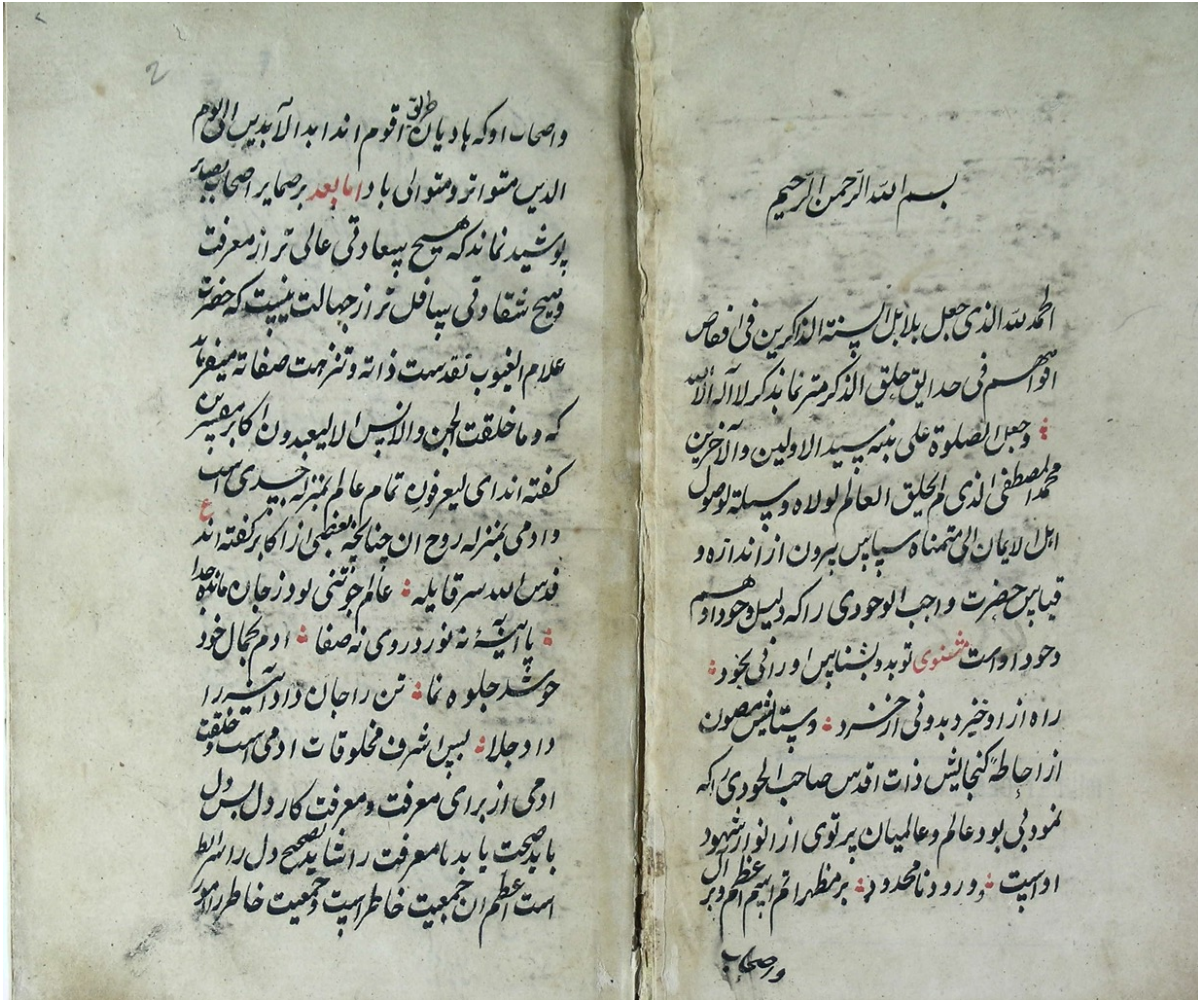 بسم الله الرحمن الرحيم
الحمد لله الذی جعل بلابل السنة الذاکرین فی اقفاص
افواههم فی حدایق خلق الذکر مترنما بذکر لا اله الا الله
و جعل الصلوة علی نبیه سید الاولین و الآخرین
محمد المصطفی الذی لم الخلق العالم لولاه وسیلة لوصول
اهل الایمان الی متمناه سپاس بیرون از اندازه و
قیاس حضرت واجب الوجودی را که دلیل وجود او هم
وجود او است مثنوی تو بدو بشناس او را نی بخود
راه از او خیزد بدو نی از خرد و ستایش مصون
از احاطهٔ گنجایش ذات اقدس صاحب الجودی را که
نمود بی بود عالم و عالمیان پرتوی از انوار شهود
اوست و درود نامحدود بر مظهر اتم اسم اعظم و بر آل
و اصحاب
2
و اصحاب او که هادیان طریق اقوم اند ابد الآبدین الی یوم
الدین متواتر و متوالی باد اما بعد بر ضمایر اصحاب بصایر
پوشید نماند که هیچ سعادتی عالی تر از معرفت
و هیچ شقاوتی سافل تر از جهالت نیست که حضرت
علام الغیوب تقدست ذاته و تنزهت صفاته میفرماید
که و ما خلقت الجن و الانس الا لیعبدون اکابر مفسرین
گفته اند ای لیعرفون تمام عالم بمنزله جسدی است
و ادمی بمنزله روح ان چنانچه بعضی از اکابر گفته اند ع
قدس الله سر قایله عالم چو تنی بود ز جان مانده جدا
یا آینهٔ نه نور در وی نه صفا ادم بجمال خود
چو شد جلوه نما تن را جان داد آینه را
داد جلا پس اشرف مخلوقات ادمی است و خلقت
ادمی از برای معرفت و معرفت کار دل پس دل
باید صحت یابد تا معرفت را شاید تصحیح دل را شرایط
است اعظم ان جمعیت خاطر است و جمعیت خاطر را امور